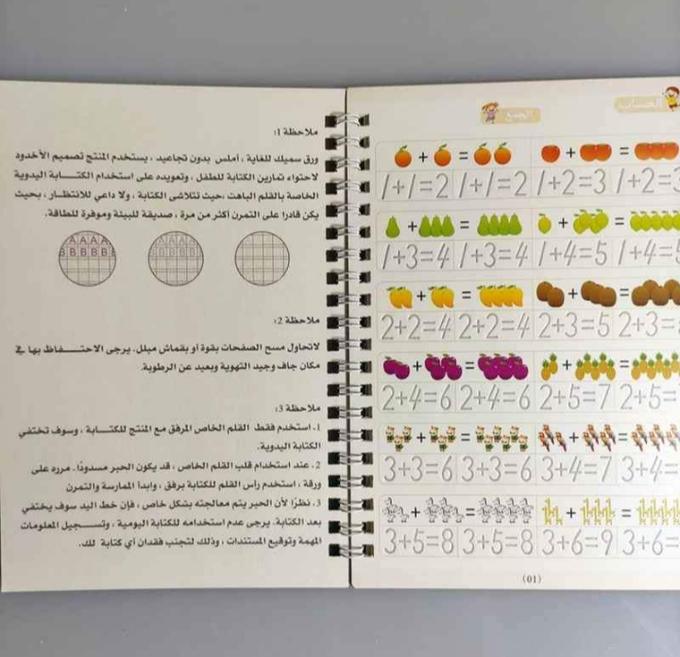 ملاحظة 1:
ورق سميك للغاية ، أملس بدون تجاعيد ، يستخدم المنتج تصميم الأخدود
لاحتواء تمارين الكتابة للطفل ، وتعويده على استخدام الكتـــابة اليدوية
الخاصة بالقلم الباهت ،حيث تتلاشى الكتابة ، ولا داعي للانتظار ، بحيث
يكن قادرا على التمرن أكثر من مرة ، صديقة للبيئة وموفرة للطاقة.
A A A A
B B B B B
ملاحظة 2:
لاتحاول مسح الصفحات بقوة أو بقماش مبلل. يرجى الاحتـــــفاظ بها في
مكان جاف وجيد التهوية وبعيد عن الرطوبة.
ملاحظة 3:
1. استخدم فقط القلم الخاص المرفق مع المنتج للكتـــابة ، وسوف تختفي
الكتابة اليدوية.
2. عند استخدام قلب القلم الخاص ، قد يكون الحبر مسدودًا. مرره على
ورقة ، استخدم رأس القلم للكتابة برفق ، وابدأ الممارسة والتمرن
3. نظرًا لأن الحبر يتم معالجته بشكل خاص ، فإن خط اليد سوف يختفي
بعد الكتابة. يرجى عدم استخدامه للكتابة اليومية ، وتســـجيل المعلومات
المهمة وتوقيع المستندات ، وذلك لتجنب فقدان أي كتابة لك.
الحساب
الجمع
+ = + =
1+1=2 1+1=2 1+2=3 1+2=3
+ = + =
1+3=4 1+3=4 1+4=5 1+4=5
+ = + =
2+2=4 2+2=4 2+3=5 2+3=
+ = + =
2+4=6 2+4=6 2+5=7 2+5=
+ = + =
3+3=6 3+3=6 3+4=7 3+4=
+ = + =
3+5=8 3+5=8 3+6=9 3+6=
(01)